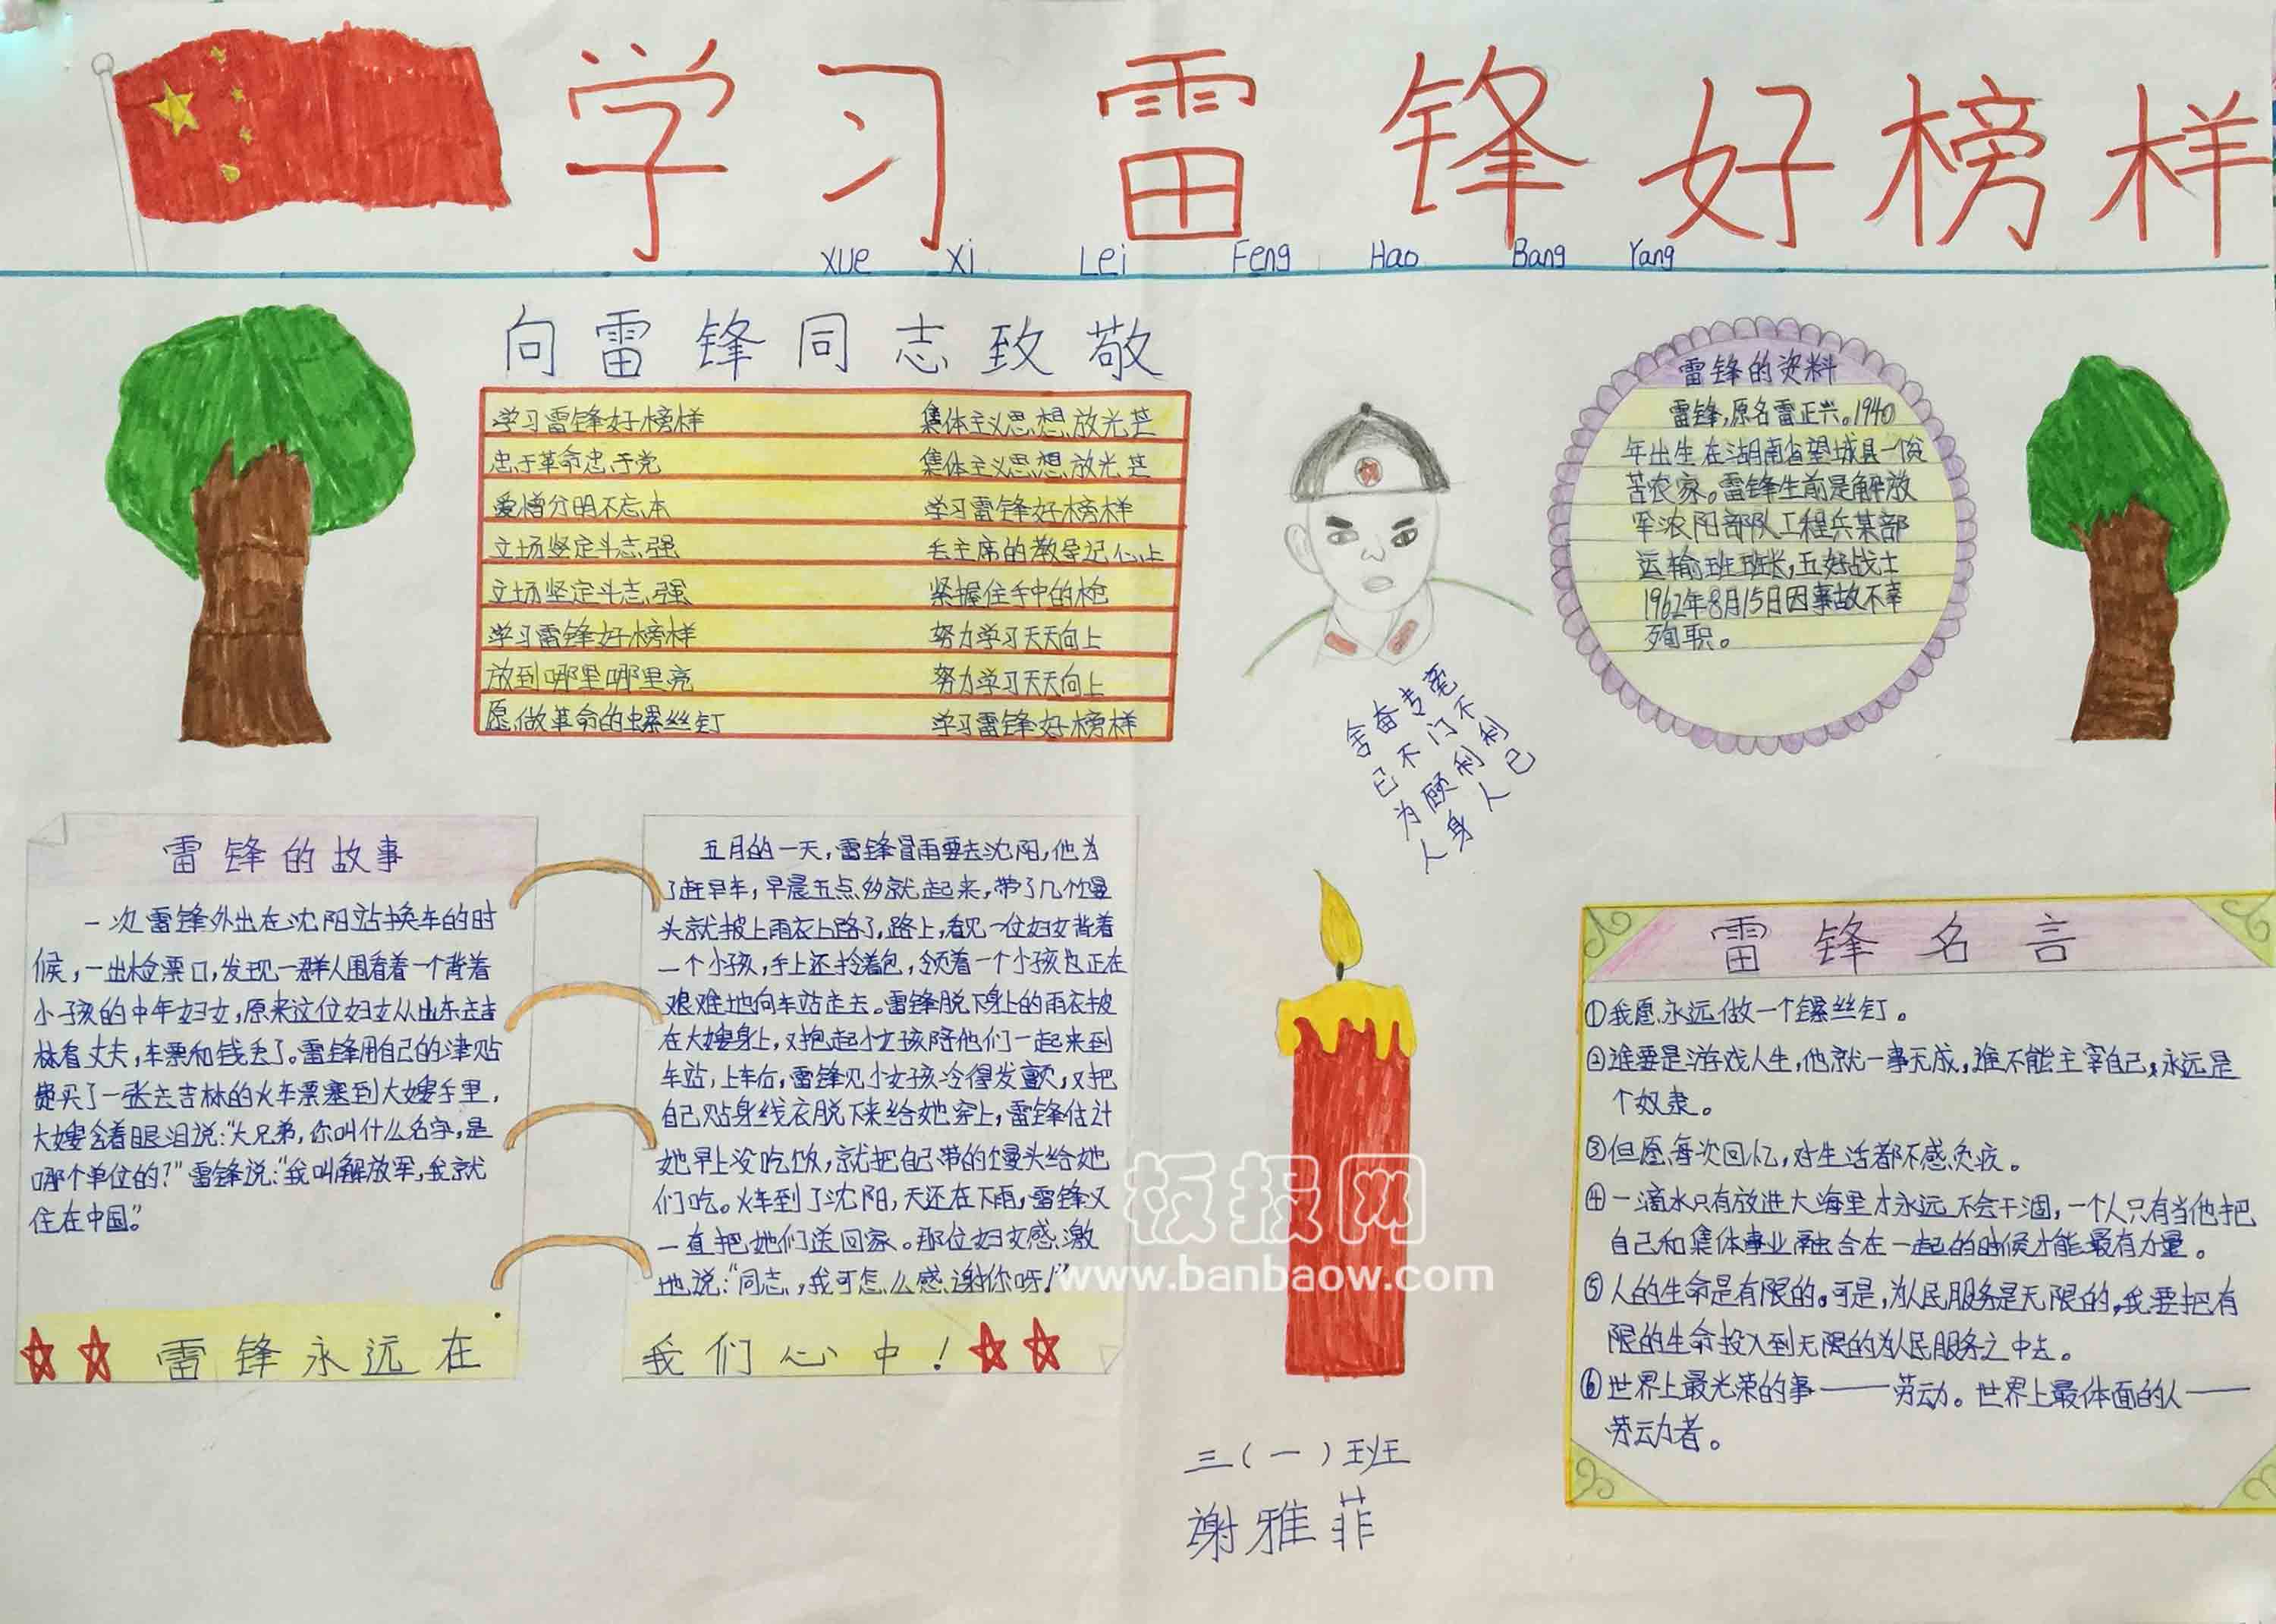 学习雷锋好榜样
xue xi Lei Feng Hao Bang Yang
向雷锋同志致敬
学习雷锋好榜样 集体主义思想放光芒
忠于革命忠于党 集体主义思想放光芒
爱憎分明不忘本 学习雷锋好榜样
立场坚定斗志强 毛主席的教导记心上
立场坚定斗志强 紧握住手中的枪
学习雷锋好榜样 努力学习天天向上
放到哪里哪里亮 努力学习天天向上
愿做革命的螺丝钉 学习雷锋好榜样
毫不利己
专门利人
奋不顾身
舍己为人
雷锋的资料
雷锋,原名雷正兴。1940
年出生在湖南省望城县一个贫
苦农家。雷锋生前是解放
军沈阳部队工程兵某部
运输班班长,五好战士
1962年8月15日因事故不幸
殉职。
雷锋的故事
一次雷锋外出在沈阳站换车的时
候,一出检票口,发现一群人围看着一个背着
小孩的中年妇女,原来这位妇女从山东去吉
林看丈夫,车票和钱丢了。雷锋用自己的津贴
费买了一张去吉林的火车票塞到大嫂手里,
大嫂含着眼泪说:“大兄弟,你叫什么名字,是
哪个单位的?”雷锋说:“我叫解放军,我就
住在中国。”
五月的一天,雷锋冒雨要去沈阳,他为
了赶早车,早晨五点多就起来,带了几个馒
头就披上雨衣上路了,路上,看见一位妇女背着
一个小孩,手上还拎着包,领着一个小孩也正在
艰难地向车站走去。雷锋脱下身上的雨衣披
在大嫂身上,又抱起小女孩陪他们一起来到
车站,上车后,雷锋见小女孩冷得发颤,又把
自己贴身线衣脱下来给她穿上,雷锋估计
她早上没吃饭,就把自己带的馒头给她
们吃。火车到了沈阳,天还在下雨,雷锋又
一直把她们送回家。那位妇女感激
地说:“同志,我可怎么感谢你呀!”
雷锋永远在
我们心中!
雷锋名言
①我愿永远做一个螺丝钉。
②谁要是游戏人生,他就一事无成,谁不能主宰自己,永远是
个奴隶。
③但愿每次回忆,对生活都不感负疚。
④一滴水只有放进大海里才永远不会干涸,一个人只有当他把
自己和集体事业融合在一起的时候才能最有力量。
⑤人的生命是有限的。可是,为人民服务是无限的,我要把有
限的生命投入到无限的为人民服务之中去。
⑥世界上最光荣的事——劳动。世界上最体面的人——
劳动者。
三(一)班
谢雅菲
板报网
www.banbaow.com